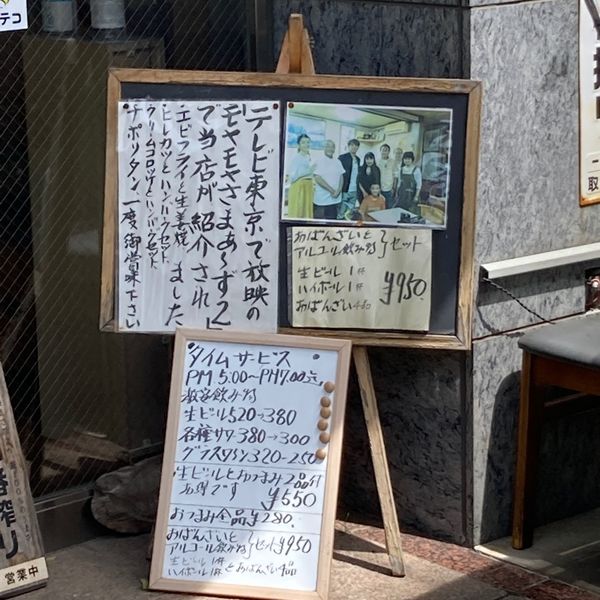 テコ
テレビ東京で放映の
「モヤモヤさまぁ〜ず2」
で当店が紹介され
ました
エビフライと生姜焼
ヒレカツとハンバーグセット
クリームコロッケとハンバーグセット
ナポリタン一度御賞味下さい
おばんざいと
アルコール飲み物
セット
生ビール1杯
ハイボール1杯
おばんざい4品
¥950
タイムサービス
PM5:00〜PM7:00迄
激安飲み物
生ビール520→380
各種サワー380→300
グラスワイン320→250
生ビールとおつまみ2品付
お得です
¥550
おつまみ全品¥280
おばんざいと
アルコール飲み物
セット¥950
生ビール1杯
ハイボール1杯とおばんざい4品
搾り
営業中
取